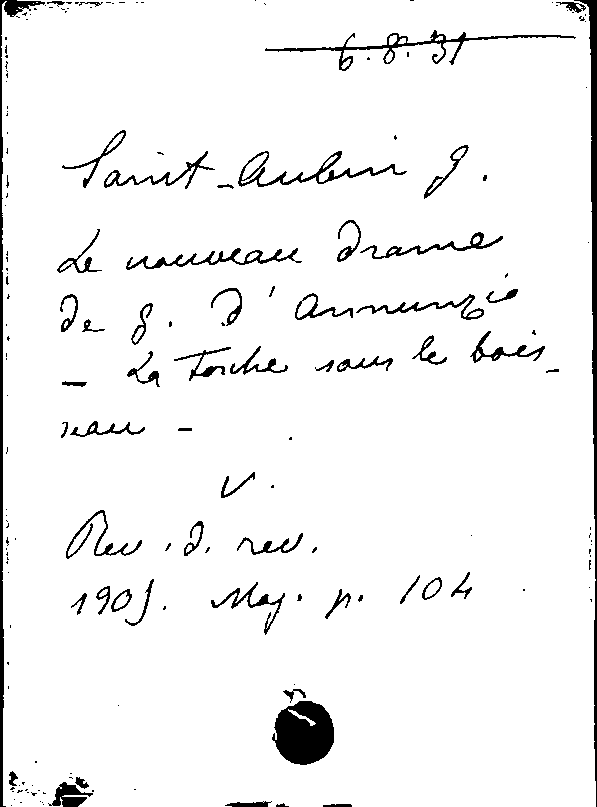 6.8.31
Saint-Aubin G.
Le nouveau drame
de G. d'Annunzio
- La Torche sous le bois-
seau -
V.
Rev. d. rev.
1905. Mag. p. 104